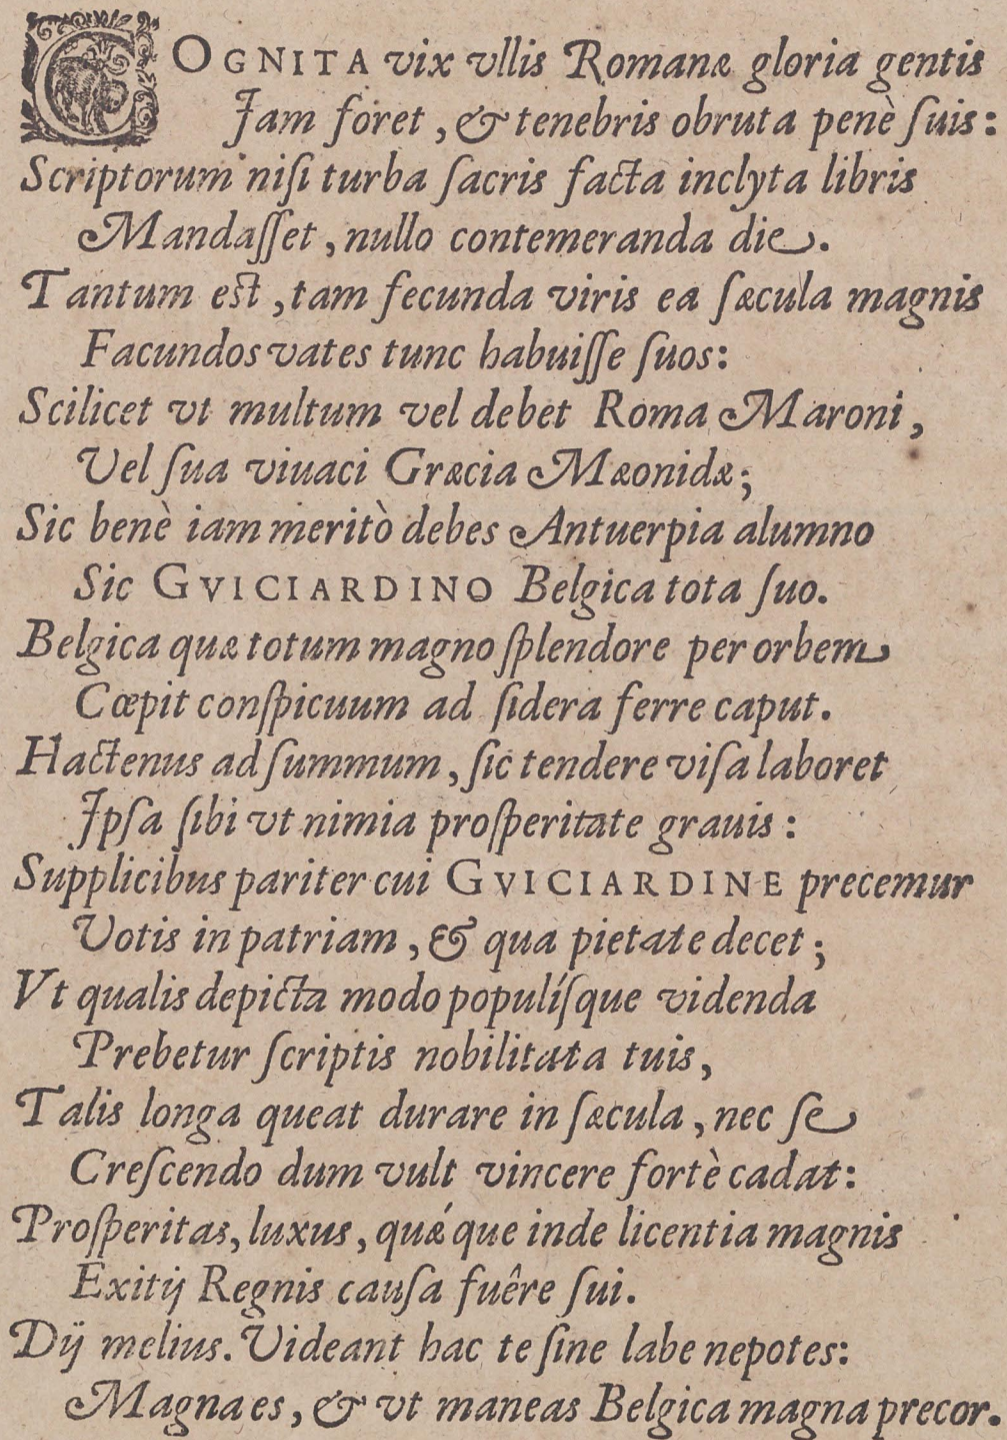 COGNITA vix vllis Romanæ gloria gentis
Jam foret, & tenebris obruta penè ſuis:
Scriptorum niſi turba ſacris facta inclyta libris
Mandaſſet, nullo contemeranda die.
Tantum eſt, tam fecunda viris ea ſæcula magnis
Facundos vates tunc habuiſſe ſuos:
Scilicet vt multum vel debet Roma Maroni,
Vel ſua viuaci Græcia Mæonidæ;
Sic benè iam meritò debes Antuerpia alumno
Sic GVICIARDINO Belgica tota ſuo.
Belgica quæ totum magno ſplendore per orbem
Cœpit conſpicuum ad ſidera ferre caput.
Hactenus ad ſummum, ſic tendere viſa laboret
Jpſa ſibi vt nimia proſperitate grauis:
Supplicibus pariter cui GVICIARDINE precemur
Votis in patriam, & qua pietate decet;
Vt qualis depicta modo populíſque videnda
Prebetur ſcriptis nobilitata tuis,
Talis longa queat durare in ſæcula, nec ſe
Creſcendo dum vult vincere fortè cadat:
Proſperitas, luxus, quǽque inde licentia magnis
Exitij Regnis cauſa fuêre ſui.
Dij melius. Videant hac te ſine labe nepotes:
Magna es, & vt maneas Belgica magna precor.